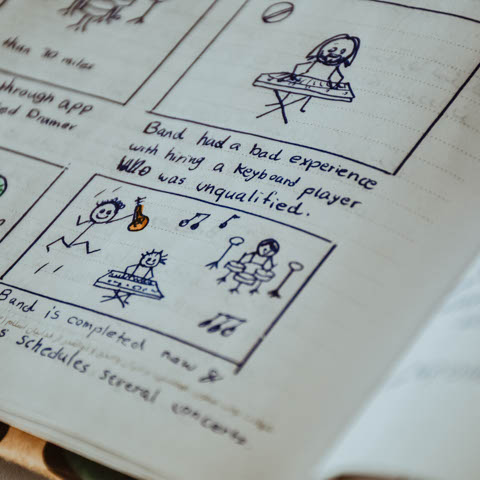 than 30 miles
through app
Drumer
Band had a bad experience
with hiring a keyboard player
who was unqualified.
Band is completed now &
schedules several concerts